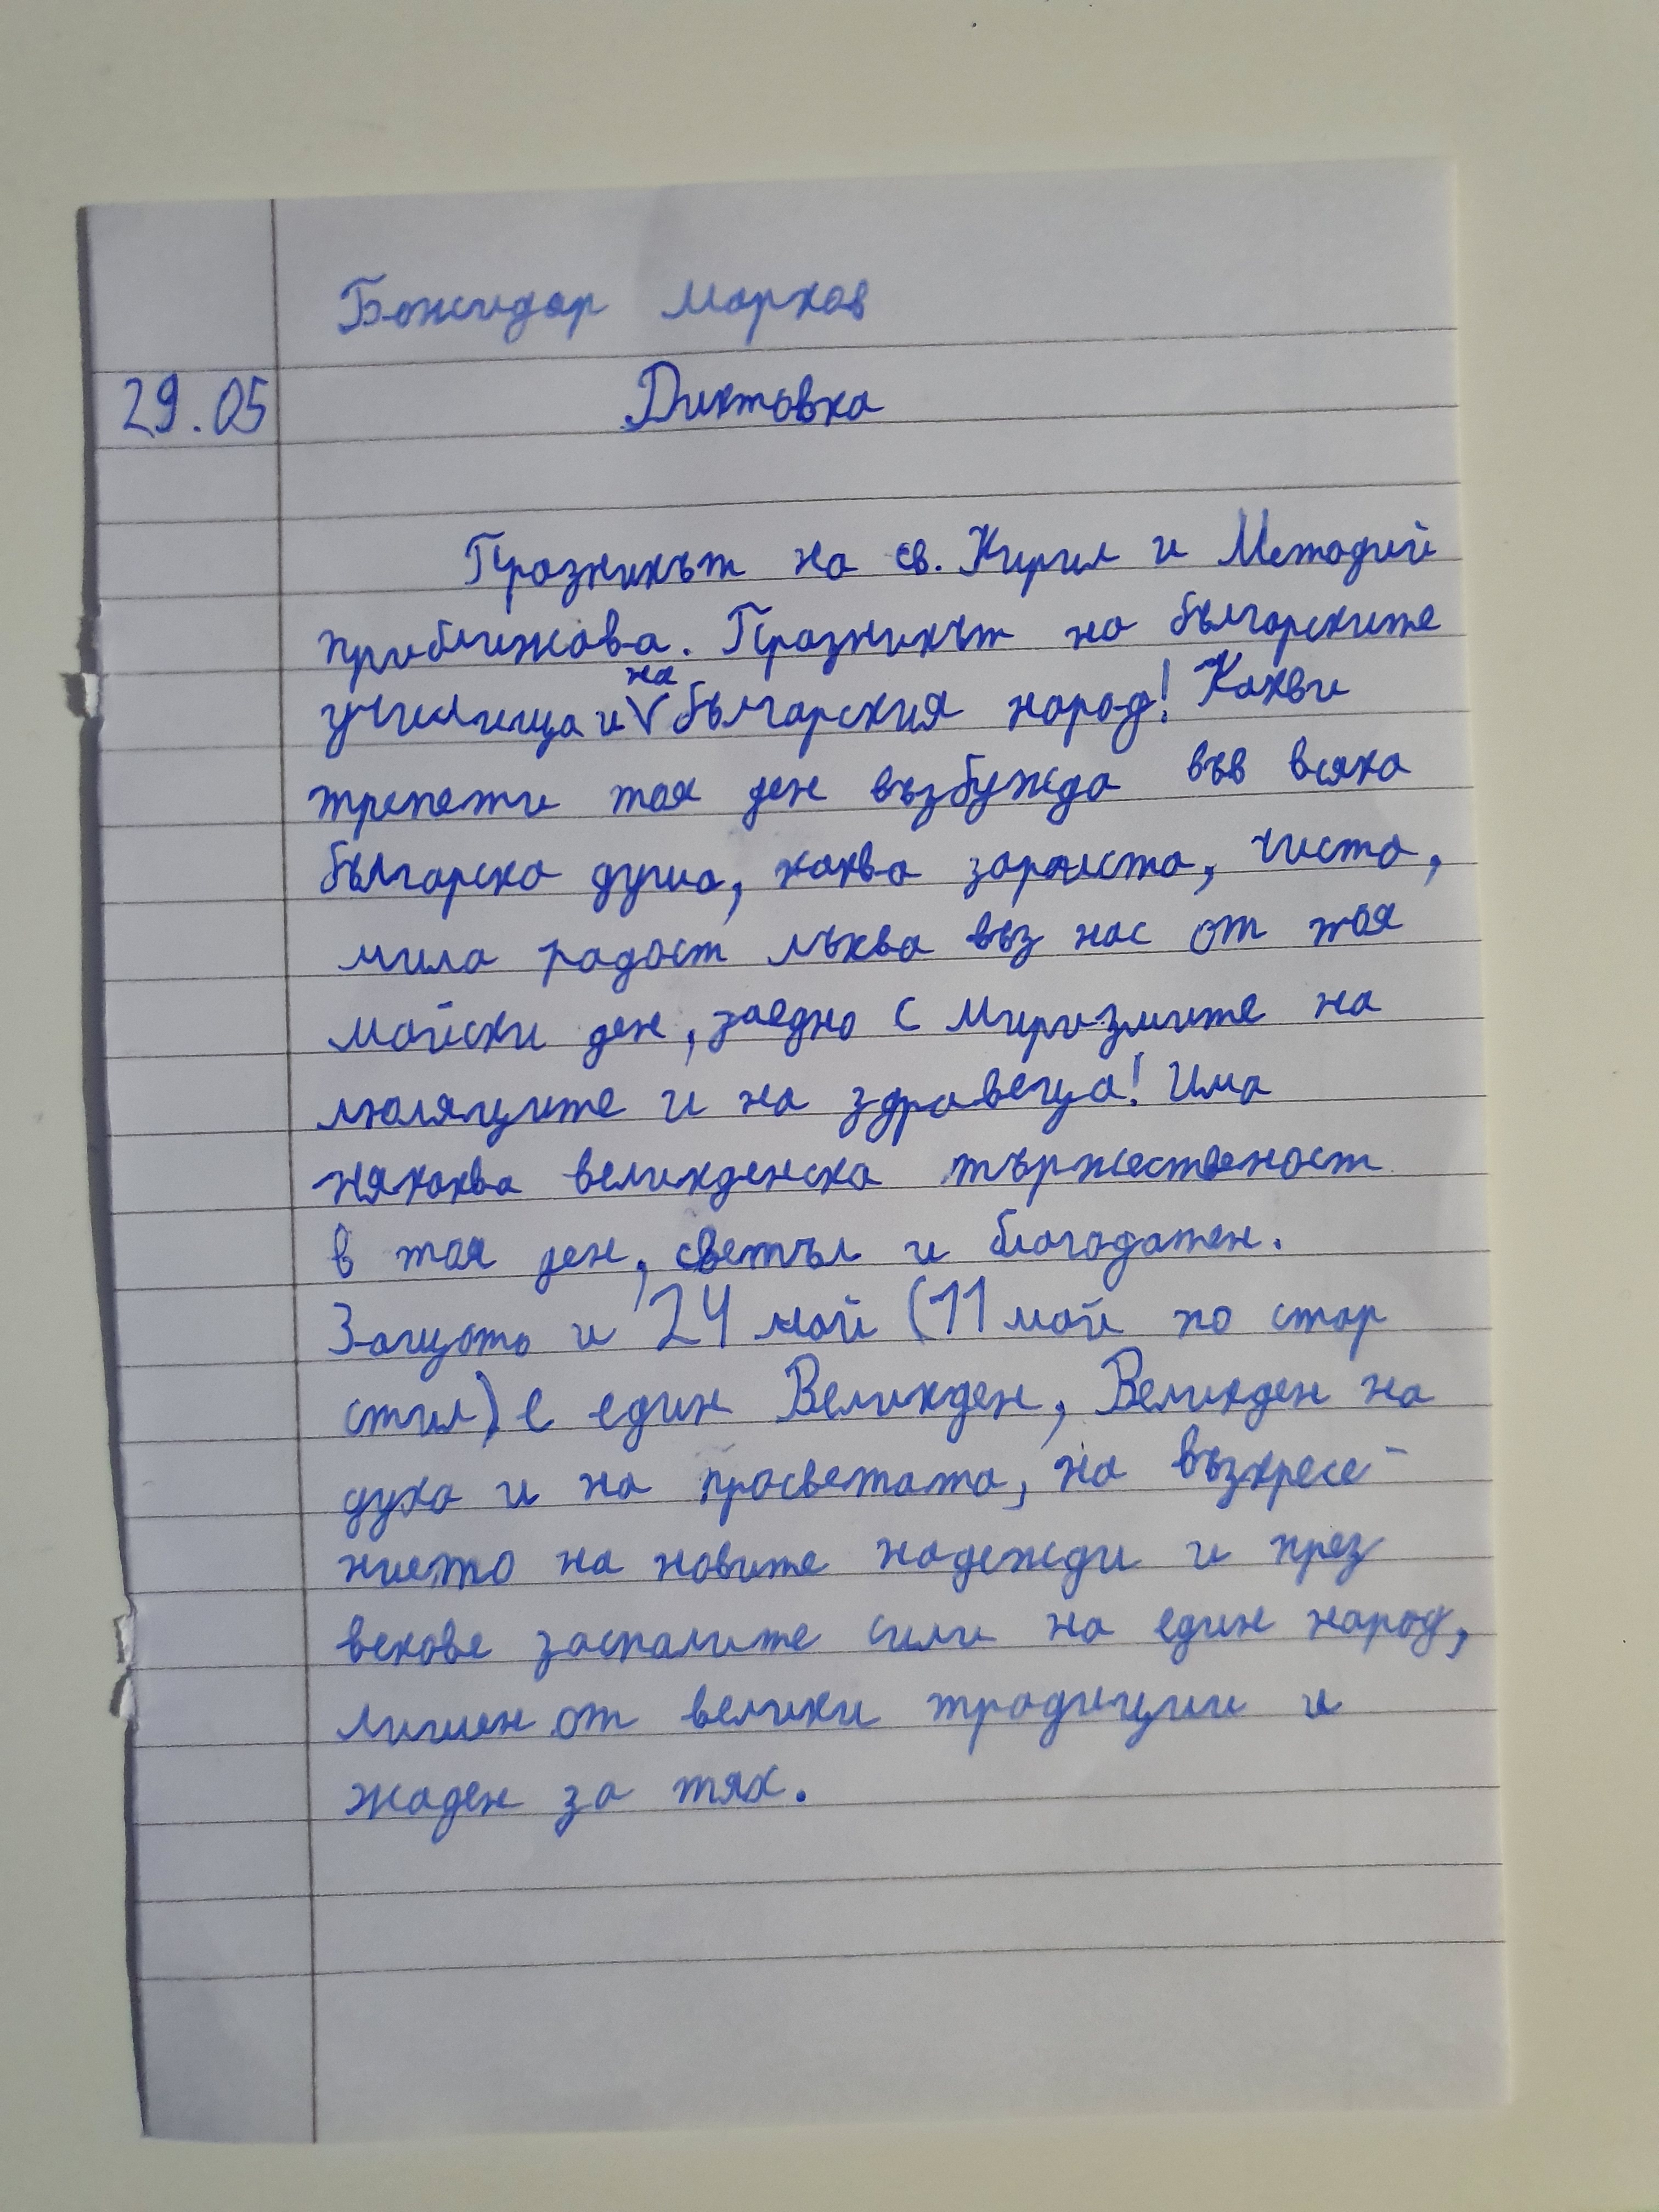 Божидар Марков
29.05 Диктовка
Празникът на св. Кирил и Методий
приближава. Празникът на българските
училища и на българския народ! Какви
трепети тоя ден възбужда във всяка
българска душа, каква зариста, чиста,
мила радост лъхва въз нас от тоя
майски ден, заедно с миризмите на
люляците и на здравеца! Има
някаква великденска тържественост
в тоя ден, светъл и благодатен.
Защото и 24 май (11 май по стар
стил) е един Великден, Великден на
духа и на просветата, на възкресе-
нието на новите надежди и през
векове заспалите сили на един народ,
лишен от велики традиции и
жаден за тях.